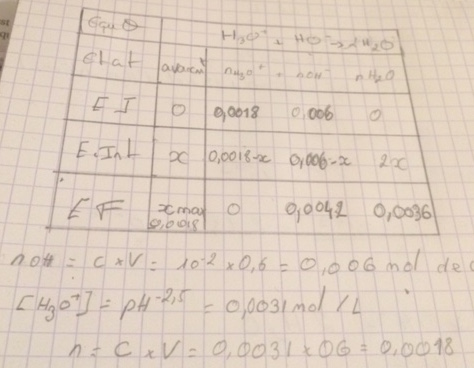 Equ° H3O+ + HO- → 2H2O
Etat avancmt nH3O+ + nOH- nH2O
E I 0 0,0018 0,006 0
E.Int x 0,0018-x 0,006-x 2x
E F xmax 0,0018 0 0,0042 0,0036
nOH = C x V = 10-2 x 0,6 = 0,006 mol de
[H3O+] = pH-2,5 = 0,0031 mol / L
n = C x V = 0,0031 x 06 = 0,0018